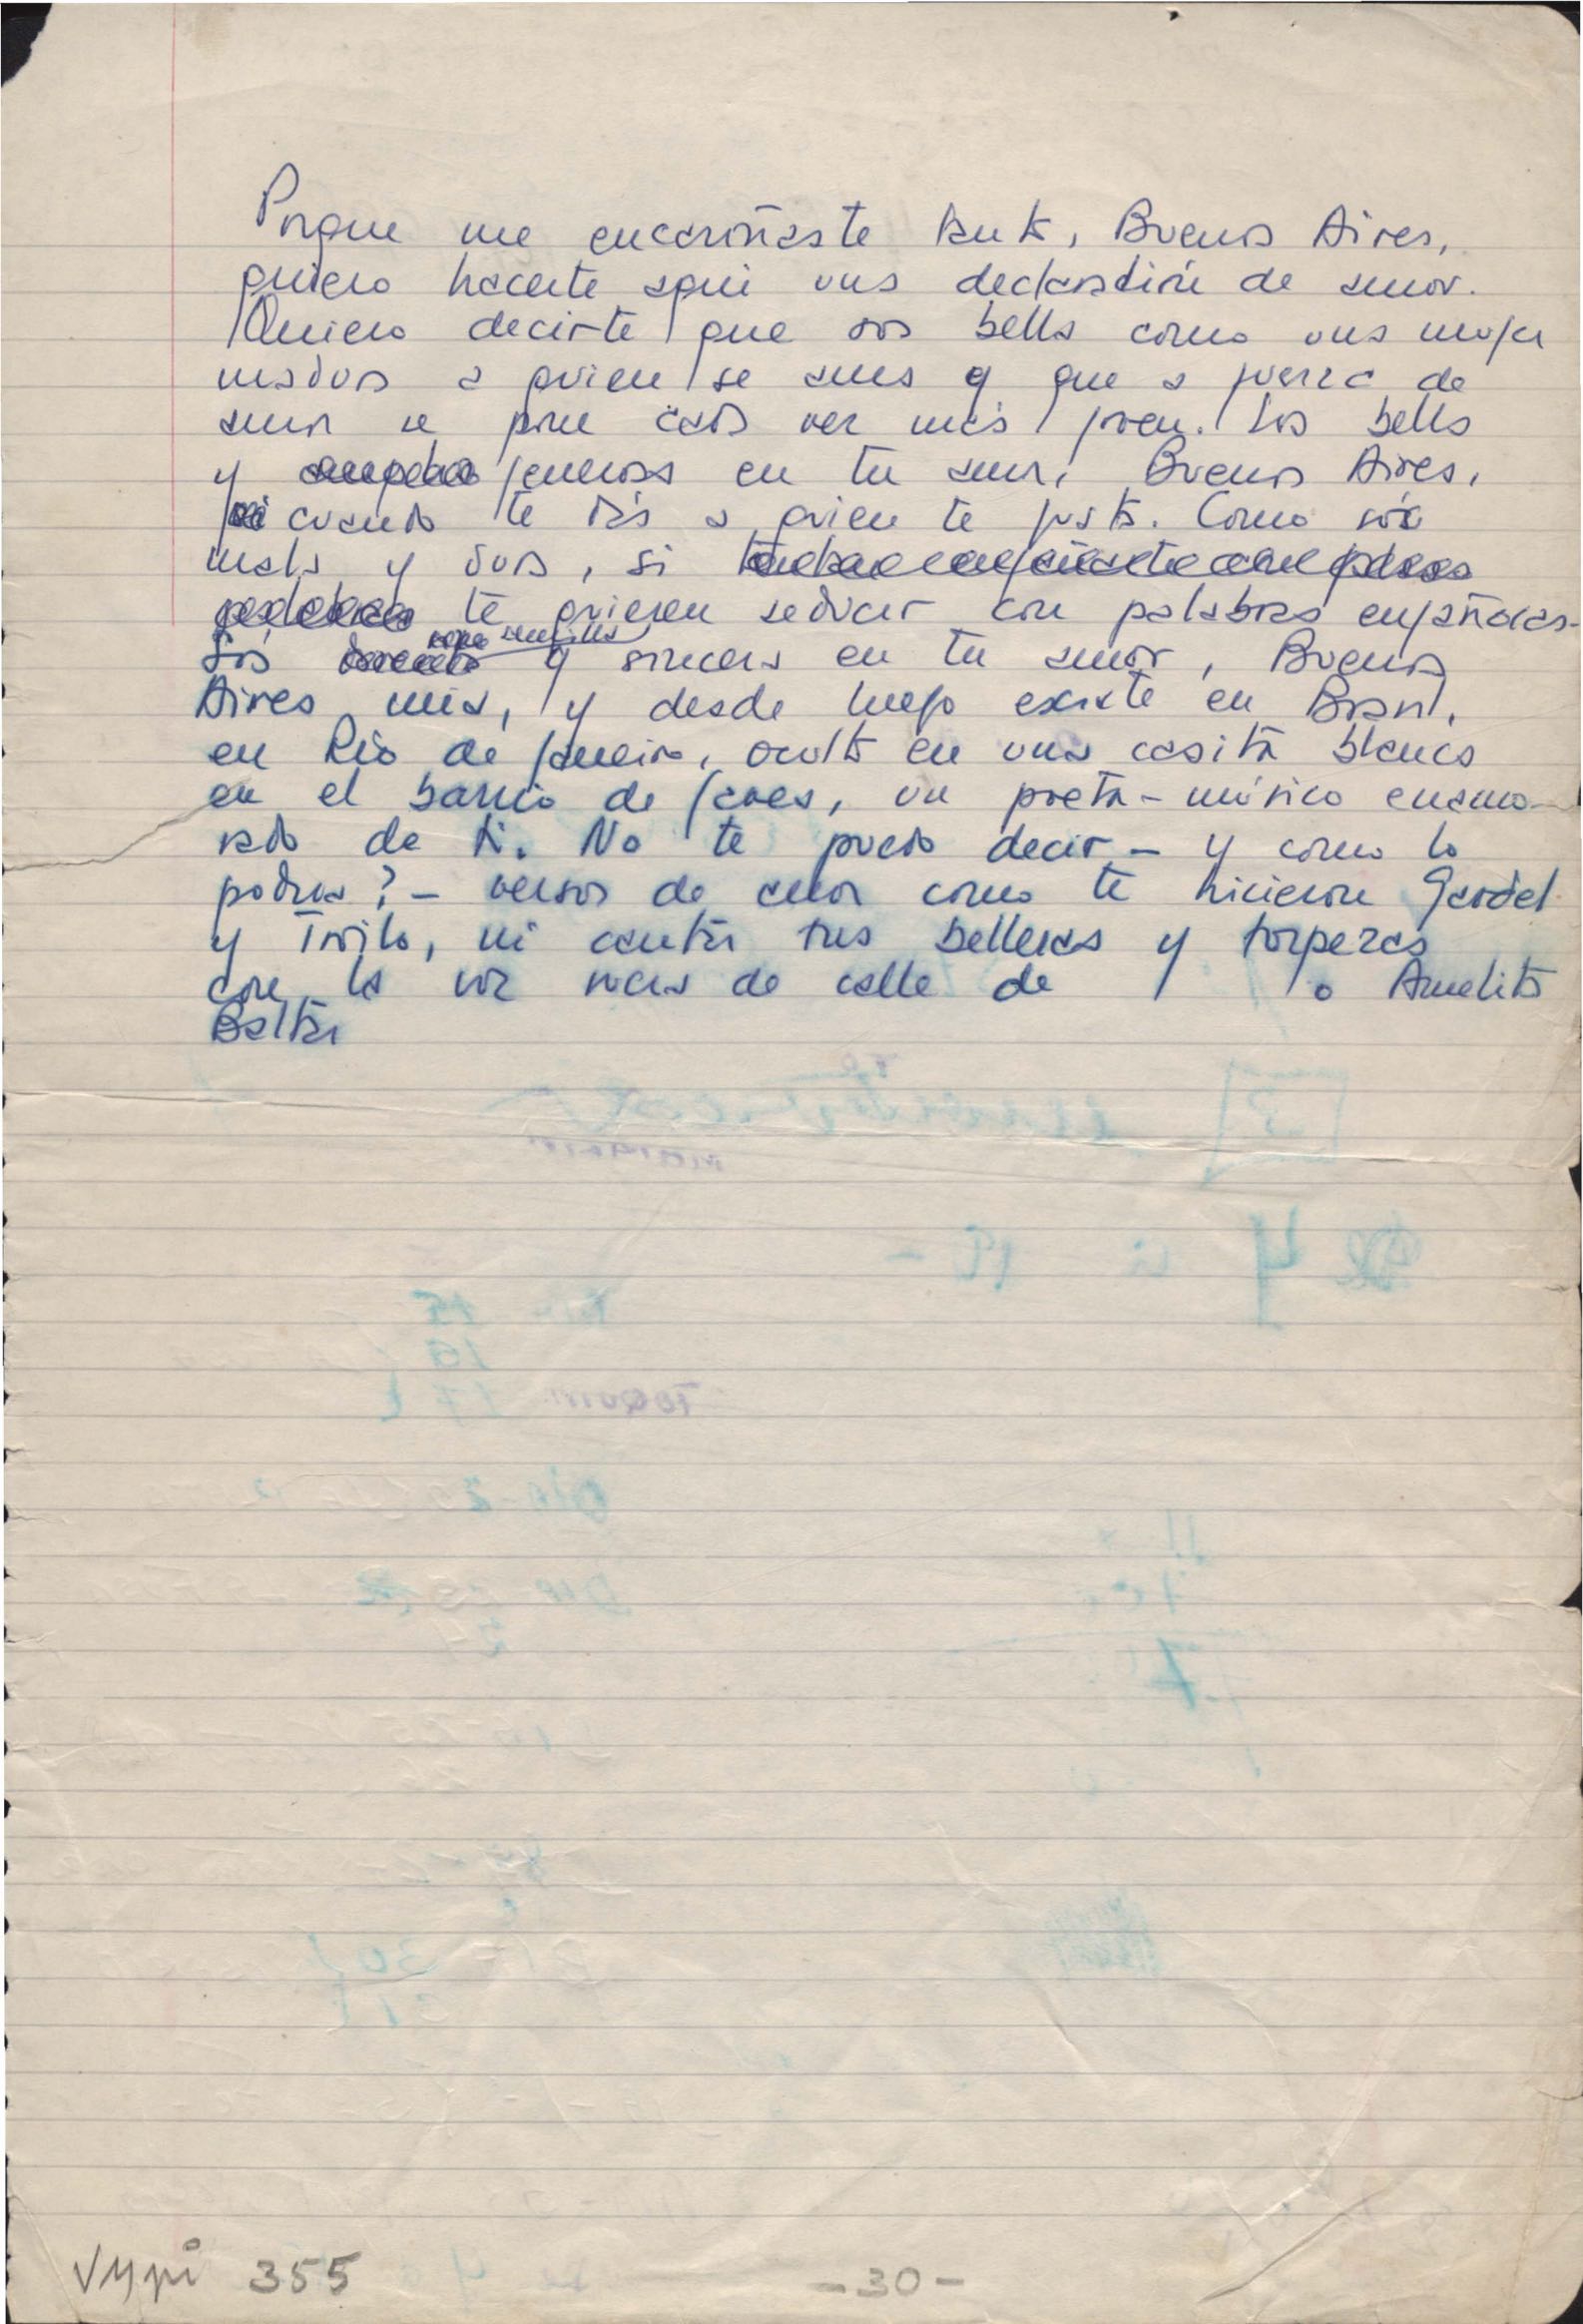 Porque me encariñaste tanto, Buenos Aires,
quiero hacerte aqui una declaración de amor.
Quiero decirte que sos bella como una mujer
madura a quien se ama y que a fuerza de
amor se pone cada vez más joven. Sos bella
y generosa en tu amor, Buenos Aires,
cuando te dás a quien te gusta. Como sós
mala y dura, si
te quieren seducir con palabras engañosas.
Sos sencilla y sincera en tu amor, Buenos
Aires mia, y desde luego existe en Brasil,
en Rio de Janeiro, oculto en una casita blanca
en el barrio de Gavea, un poeta-músico enamo-
rado de ti. No te puedo decir - y como lo
podria? - versos de amor como te hicieron Gardel
y Troilo, ni cantar tus bellezas y torpezas
con la voz ronca de calle de o Amelita
Baltar
Vypi 355
-30-